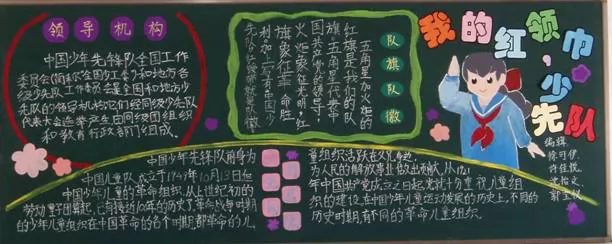 领导机构
中国少年先锋队全国工作
委员会(简称全国少工委)和地方各
级少先队工作委员会是全国和地方少
先队的领导机构它们经同级少先队
代表大会选举产生由同级团组织
和教育行政部门组成。
队旗队徽
五角星加火炬的
红旗是我们的队
旗,五角星代表中
国共产党的领导,
火炬象征光明,红
旗象征革命胜
利
我的红领巾,少先队
编辑
中国少年先锋队前身为
中国儿童队成立于1949年10月13日
中国少年儿童的革命组织,从上世纪初的
劳动童子团算起,已有接近100年的历史了革命战争时期
的少年儿童组织在中国革命的各个时期,都革命的儿
童组织活跃在
为人民的解放事业做出贡献,从1921
年中国共产党成立之日起,党就十分重视儿童组
织的建设,在中国少年儿童运动发展的历史上,不同的
历史时期,有不同的革命儿童组织。